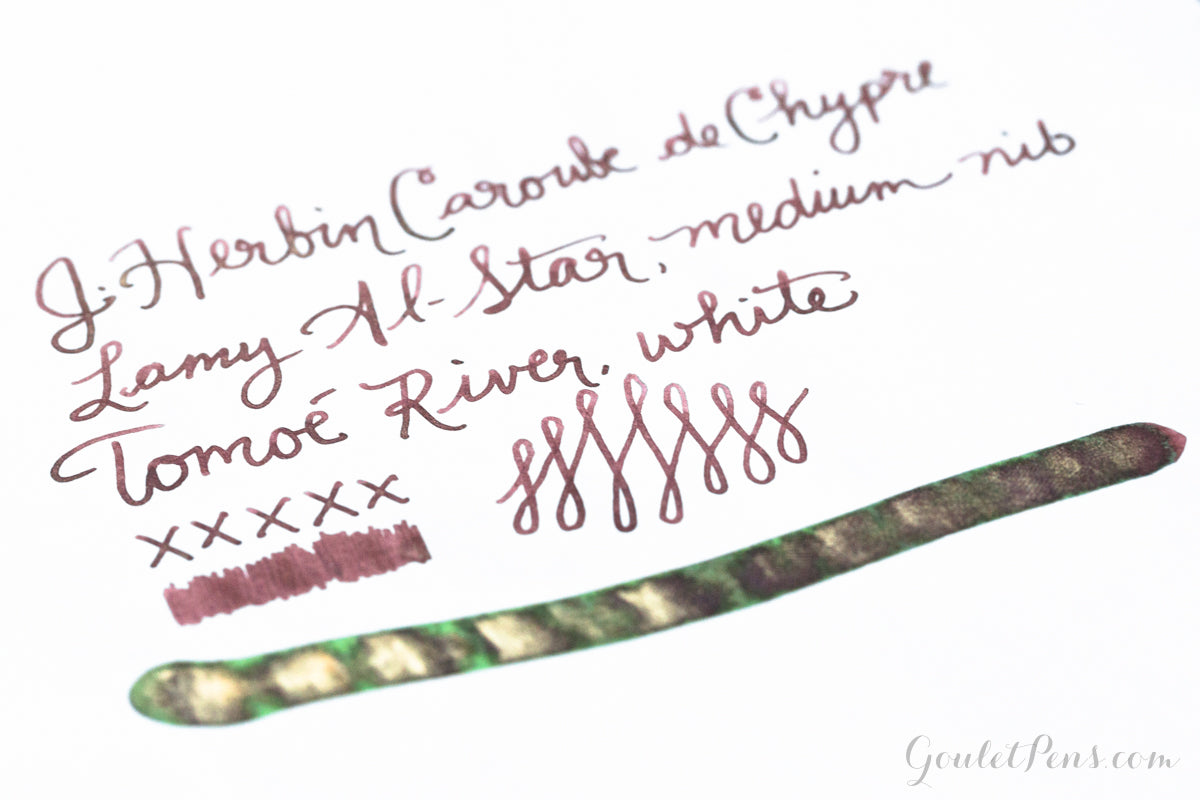 J. Herbin Caroube de Chypre
Lamy Al-Star, medium nib
Tomoé River, white
xxxxx
GouletPens.com